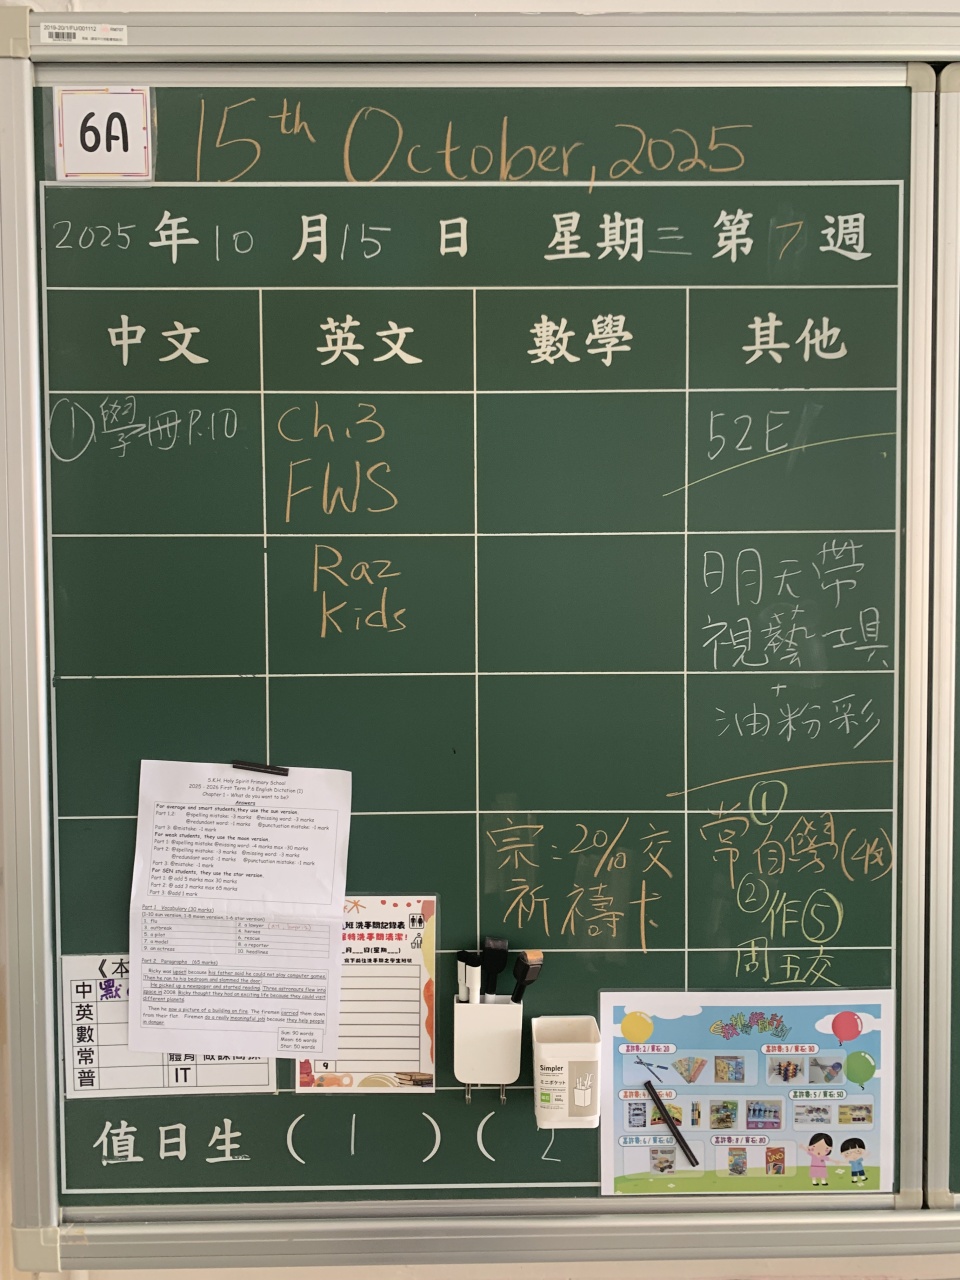 2019-20/1/FU/001112
6A
15th October, 2025
2025 年 10 月 15 日 星期三 第 7 週
中文 英文 數學 其他
①學冊 P.10
Ch.3
FWS
Raz
Kids
52E
明天帶
視藝工具
+
油粉彩
宗：20/10交
祈禱卡
①
常自學(4頁)
②作⑤
周五交
S.K.H. Holy Spirit Primary School
2025 - 2026 First Term P.6 English Dictation (1)
Chapter 1 – What do you want to be?
Answers
For average and smart students, they use the sun version.
Part 1,2: @spelling mistake: -3 marks @missing word: -3 marks
@redundant word: -1 mark @punctuation mistake: -1 mark
Part 3: @mistake: -1 mark
For weak students, they use the moon version.
Part 1: @spelling mistake @missing word: -4 marks max -30 marks
Part 2: @spelling mistake: -3 marks @missing word: -3 marks
@redundant word: -1 mark @punctuation mistake: -1 mark
Part 3: @mistake: -1 mark
For SEN students, they use the star version.
Part 1: @ add 5 marks max 30 marks
Part 2: @ add 3 marks max 65 marks
Part 3: @add 1 mark
Part 1 Vocabulary (30 marks)
(1-10 sun version, 1-8 moon version, 1-6 star version)
1. fly
2. a lawyer
3. outbreak
4. heroes
5. a pilot
6. rescue
7. a model
8. a reporter
9. an actress
10. headlines
Part 2 Paragraphs (65 marks)
Ricky was upset because his father said he could not play computer games.
Then he ran to his bedroom and slammed the door!
He picked up a newspaper and started reading. Three astronauts flew into
space in 2008. Ricky thought they had an exciting life because they could visit
different planets.
Then he saw a picture of a building on fire. The firemen carried them down
from their flat. Firemen do a really meaningful job because they help people
in danger.
Sun: 90 words
Moon: 66 words
Star: 50 words
班 洗手間記錄表
持洗手間清潔！
月 日(星期 )
9
《本
中 默
英
數
常
普 IT
Simpler
ミニポケット
UNO
值日生 ( 1 ) ( 2